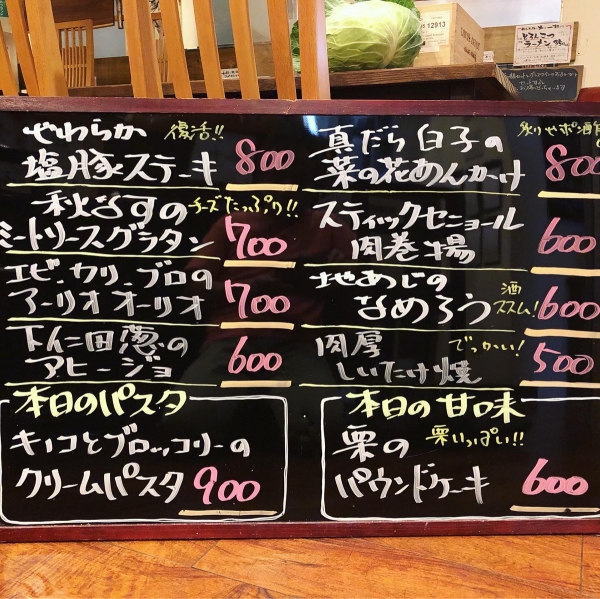 やわらか 復活!!
塩豚ステーキ 800
秋なすの チーズたっぷり!!
ミートソースグラタン 700
エビ、カリ、ブロの
アーリオオーリオ 700
下仁田葱の
アヒージョ 600
本日のパスタ
キノコとブロッコリーの
クリームパスタ 900
真だら白子の
菜の花あんかけ 800
スティックセニョール
肉巻き揚 600
地あじの 酒
なめろう ススム! 600
肉厚 でっかい!
しいたけ焼 500
本日の甘味
栗の 栗いっぱい!!
パウンドケーキ 600
とろとんこつ
ラーメン